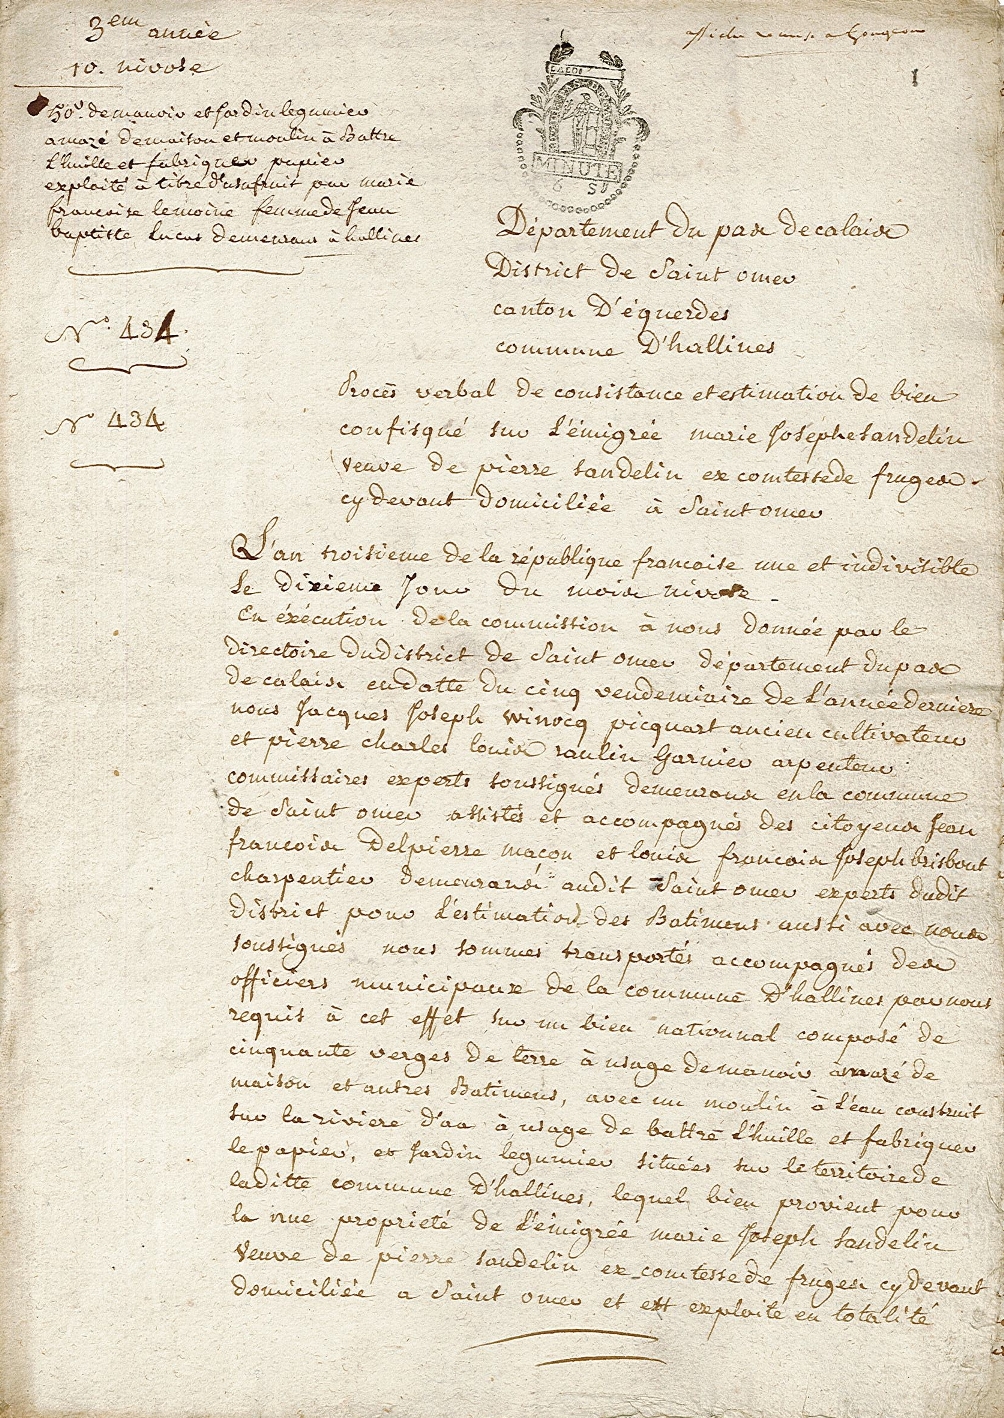 3em année
10. nivose
50v. de manoir et jardin legumier
amazé de maison et moulin à Battre
L'huille et fabriquer papier
exploité à titre d'usufruit par marie
francoise lemoine femme de Jean
baptiste Lucas demeurans à hallines
No. 434
No 434
affiche remise a
1
MINUTE
6 S
Département du pas de calais
District de Saint omer
canton D'équerdes
commune D'hallines
Procés verbal de consistance et estimation de bien
confisqué sur L'émigrée marie Josephe Sandelin
veuve de pierre Sandelin ex comtesse de fruges
cy devant domiciliée à Saint omer
L'an troisieme de la république francoise une et indivisible
Le dixieme Jour du mois nivose
En éxécution de la commission à nous donnée par le
directoire du district de Saint omer département du pas
de calais en datte du cinq vendemiaire de L'année derniere
nous Jacques Joseph winocq picquart ancien cultivateur
et pierre charles louis raulin Garnier arpenteur
commissaires experts soussignés demeurans en la commune
de Saint omer assistés et accompagnés des citoyens Jean
francois Delpierre macon et louis francois Joseph brisbout
charpentier demeurans audit Saint omer experts dudit
District pour L'estimation des Batimens aussi avec nous
soussignés nous sommes transportés accompagnés des
officiers municipaux de la commune D'hallines par nous
requis à cet effet sur un bien nationnal composé de
cinquante verges de terre à usage de manoir amazé de
maison et autres Batimens, avec un moulin à L'eau construit
sur la riviere d'aa à usage de battre L'huille et fabriquer
le papier, et Jardin legumier situées sur le territoire de
laditte commune D'hallines, lequel bien provient pour
la nue proprieté de L'émigrée marie Joseph Sandelin
Veuve de pierre Sandelin ex-comtesse de fruges cy devant
domiciliée a Saint omer et est exploité en totalité